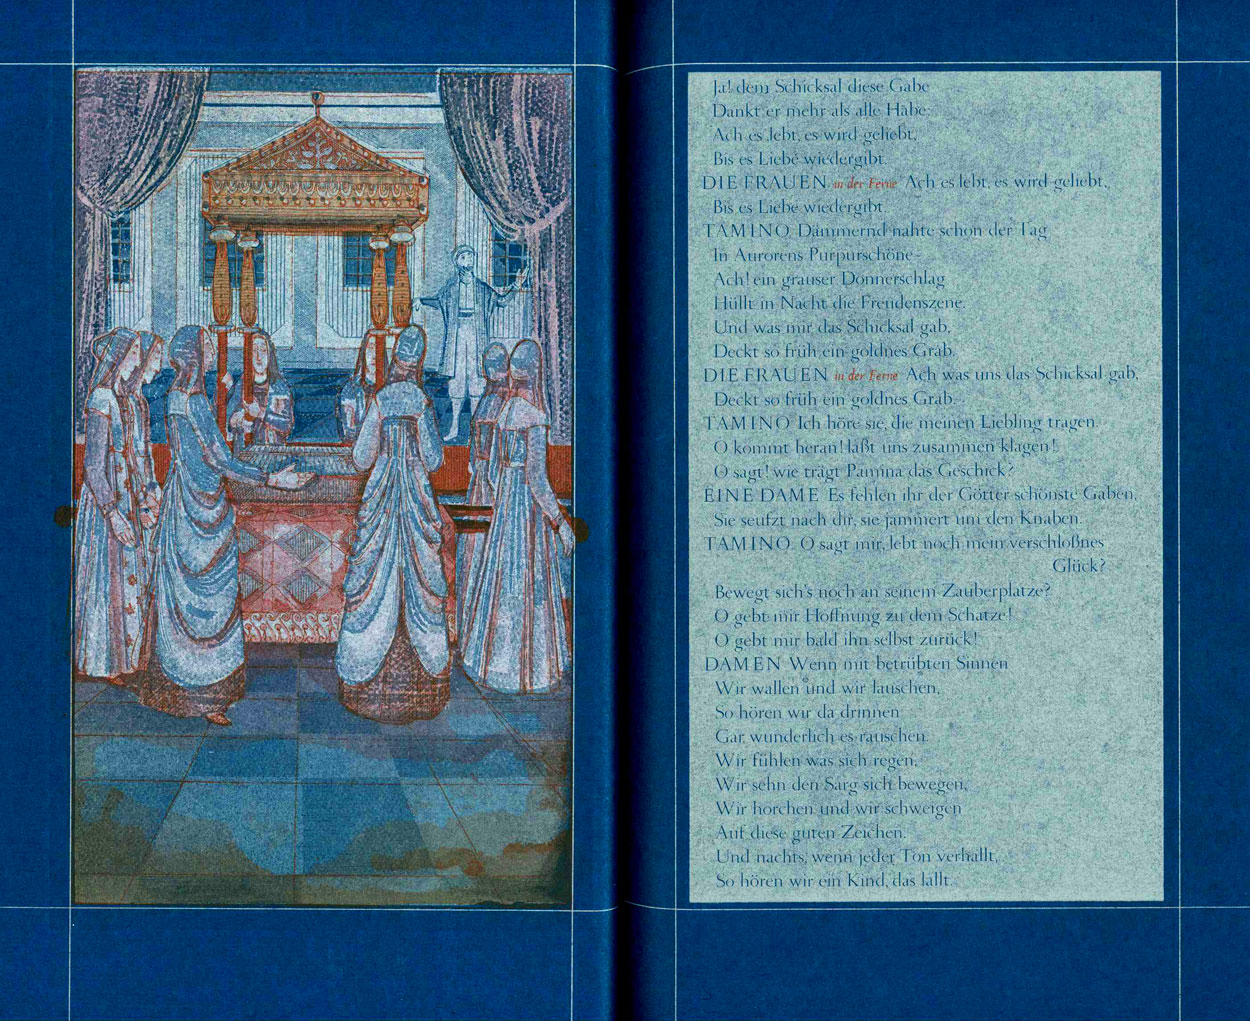 Ja! dem Schicksal diese Gabe
Dankt er mehr als alle Habe.
Ach es lebt, es wird geliebt,
Bis es Liebe wiedergibt.
DIE FRAUEN in der Ferne Ach es lebt, es wird geliebt,
Bis es Liebe wiedergibt.
TAMINO Dämmernd nahte schon der Tag
In Aurorens Purpurschöne-
Ach! ein grauser Donnerschlag
Hüllt in Nacht die Freudenszene.
Und was mir das Schicksal gab,
Deckt so früh ein goldnes Grab.
DIE FRAUEN in der Ferne Ach was uns das Schicksal gab,
Deckt so früh ein goldnes Grab.
TAMINO Ich höre sie, die meinen Liebling tragen.
O kommt heran! laßt uns zusammen klagen!
O sagt! wie trägt Pamina das Geschick?
EINE DAME Es fehlen ihr der Götter schönste Gaben,
Sie seufzt nach dir, sie jammert um den Knaben.
TAMINO O sagt mir, lebt noch mein verschloßnes
Glück?
Bewegt sich's noch an seinem Zauberplatze?
O gebt mir Hoffnung zu dem Schatze!
O gebt mir bald ihn selbst zurück!
DAMEN Wenn mit betrübten Sinnen
Wir wallen und wir lauschen,
So hören wir da drinnen
Gar wunderlich es rauschen.
Wir fühlen was sich regen,
Wir sehn den Sarg sich bewegen,
Wir horchen und wir schweigen
Auf diese guten Zeichen.
Und nachts, wenn jeder Ton verhallt,
So hören wir ein Kind, das lallt.